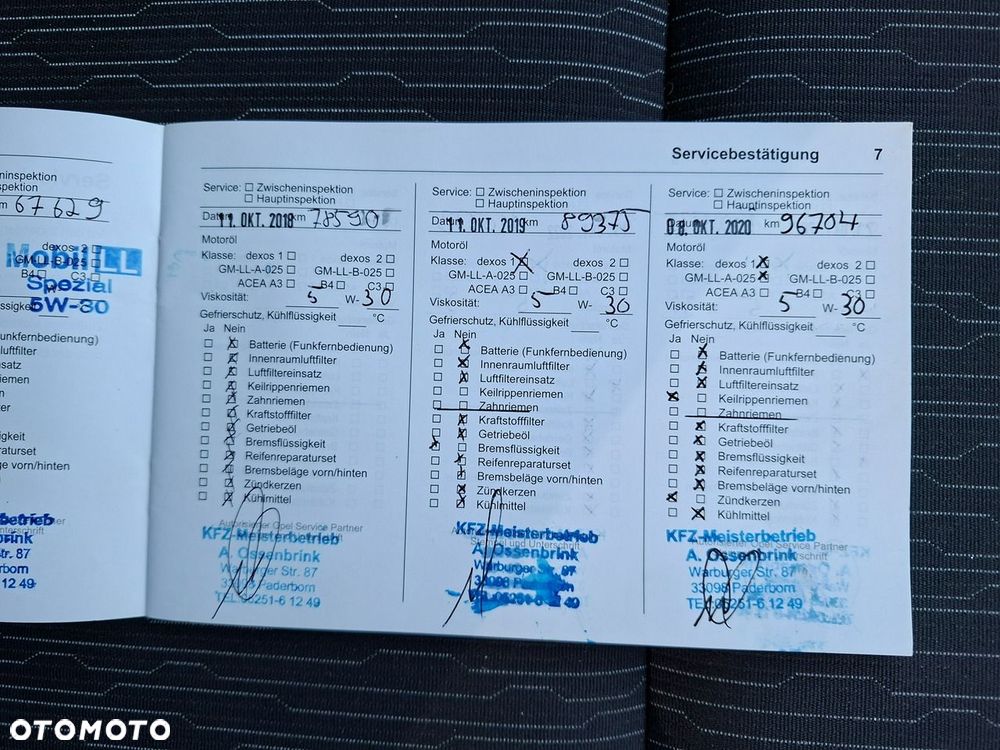 km 67629
dexos 2
Mobil
GM-LL-B-025
B4 C3
Spezial
5W-30
unkfernbedienung)
aturset
eläge vorn/hinten
Str. 87
12 49
Servicebestätigung 7
Service: Zwischeninspektion
Hauptinspektion
Datum 11. OKT. 2018 78590
Motoröl
Klasse: dexos 1 dexos 2
GM-LL-A-025 GM-LL-B-025
ACEA A3 B4 C3
Viskosität: 5 W-30
Gefrierschutz, Kühlflüssigkeit °C
Ja Nein
Batterie (Funkfernbedienung)
Innenraumluftfilter
Luftfiltereinsatz
Keilrippenriemen
Zahnriemen
Kraftstofffilter
Getriebeöl
Bremsflüssigkeit
Reifenreparaturset
Bremsbeläge vorn/hinten
Zündkerzen
Kühlmittel
Autorisierter Opel Service Partner
KFZ-Meisterbetrieb
A. Ossenbrink
Warburger Str. 87
33098 Paderborn
TEL.05251-6 12 49
Service: Zwischeninspektion
Hauptinspektion
Datum 11. OKT. 2019 km 89375
Motoröl
Klasse: dexos 1 dexos 2
GM-LL-A-025 GM-LL-B-025
ACEA A3 B4 C3
Viskosität: 5 W- 30
Gefrierschutz, Kühlflüssigkeit °C
Ja Nein
Batterie (Funkfernbedienung)
Innenraumluftfilter
Luftfiltereinsatz
Keilrippenriemen
Zahnriemen
Kraftstofffilter
Getriebeöl
Bremsflüssigkeit
Reifenreparaturset
Bremsbeläge vorn/hinten
Zündkerzen
Kühlmittel
KFZ-Meisterbetrieb
Stempel und Unterschrift
A. Ossenbrink
Warburger Str. 87
33098 Paderborn
TEL.05251-6 12 49
Service: Zwischeninspektion
Hauptinspektion
Datum 08. OKT. 2020 km 96704
Motoröl
Klasse: dexos 1 dexos 2
GM-LL-A-025 GM-LL-B-025
ACEA A3 B4 C3
Viskosität: 5 W-30
Gefrierschutz, Kühlflüssigkeit °C
Ja Nein
Batterie (Funkfernbedienung)
Innenraumluftfilter
Luftfiltereinsatz
Keilrippenriemen
Zahnriemen
Kraftstofffilter
Getriebeöl
Bremsflüssigkeit
Reifenreparaturset
Bremsbeläge vorn/hinten
Zündkerzen
Kühlmittel
KFZ-Meisterbetrieb
Autorisierter Opel Service Partner
A. Ossenbrink
Warburger Str. 87
33098 Paderborn
TEL.05251-6 12 49
OTOMOTO